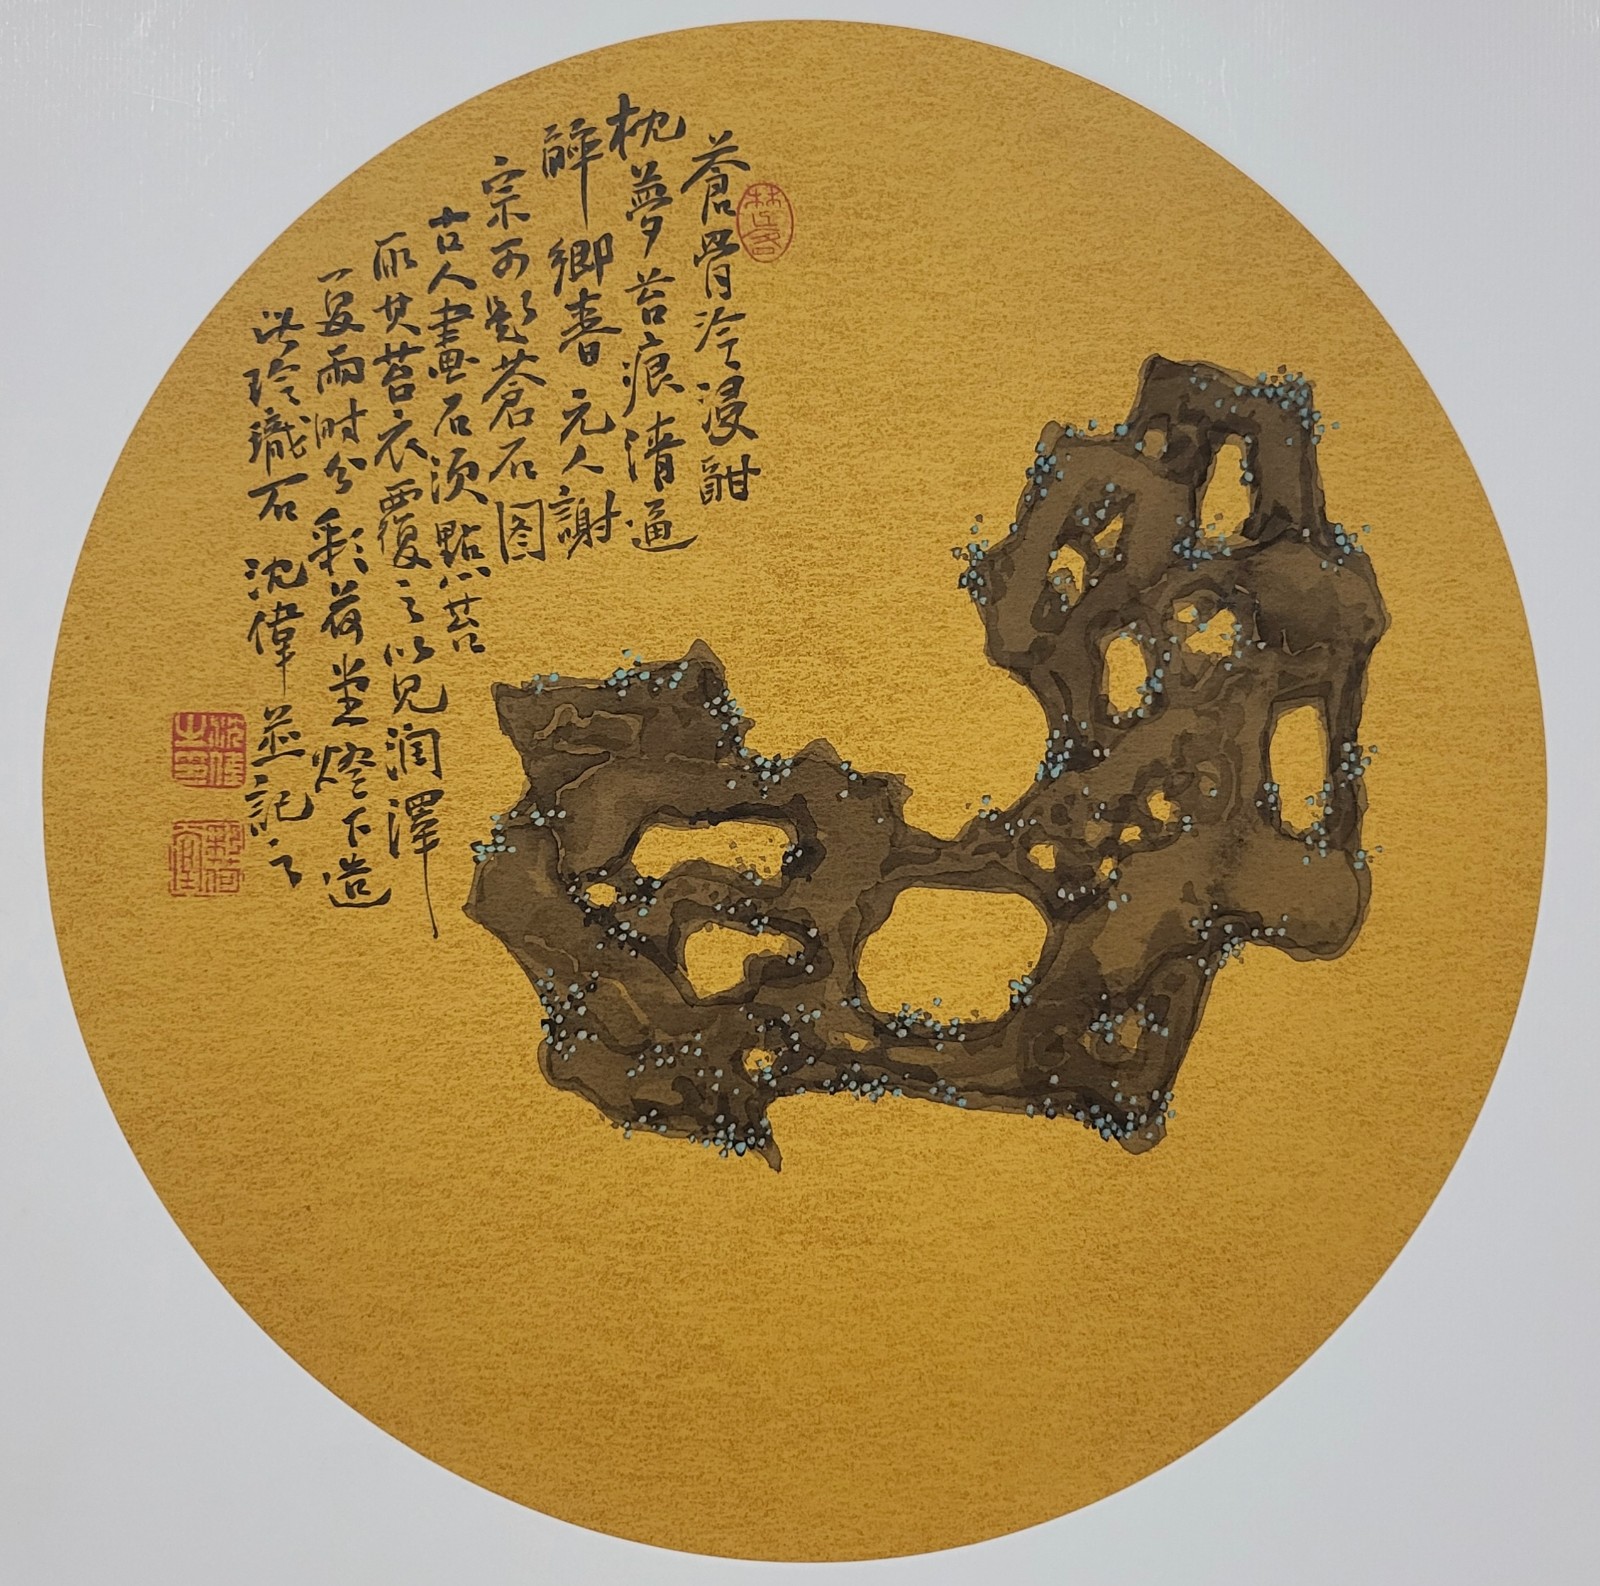 蒼骨冷浸酣
枕夢苔痕清逼
醉鄉春元人謝
宗可題蒼石图
古人畫石須點苔
取其苔衣覆之以見潤澤
夏雨時兮彩荷堂燈下造
此玲瓏石沈偉並記之